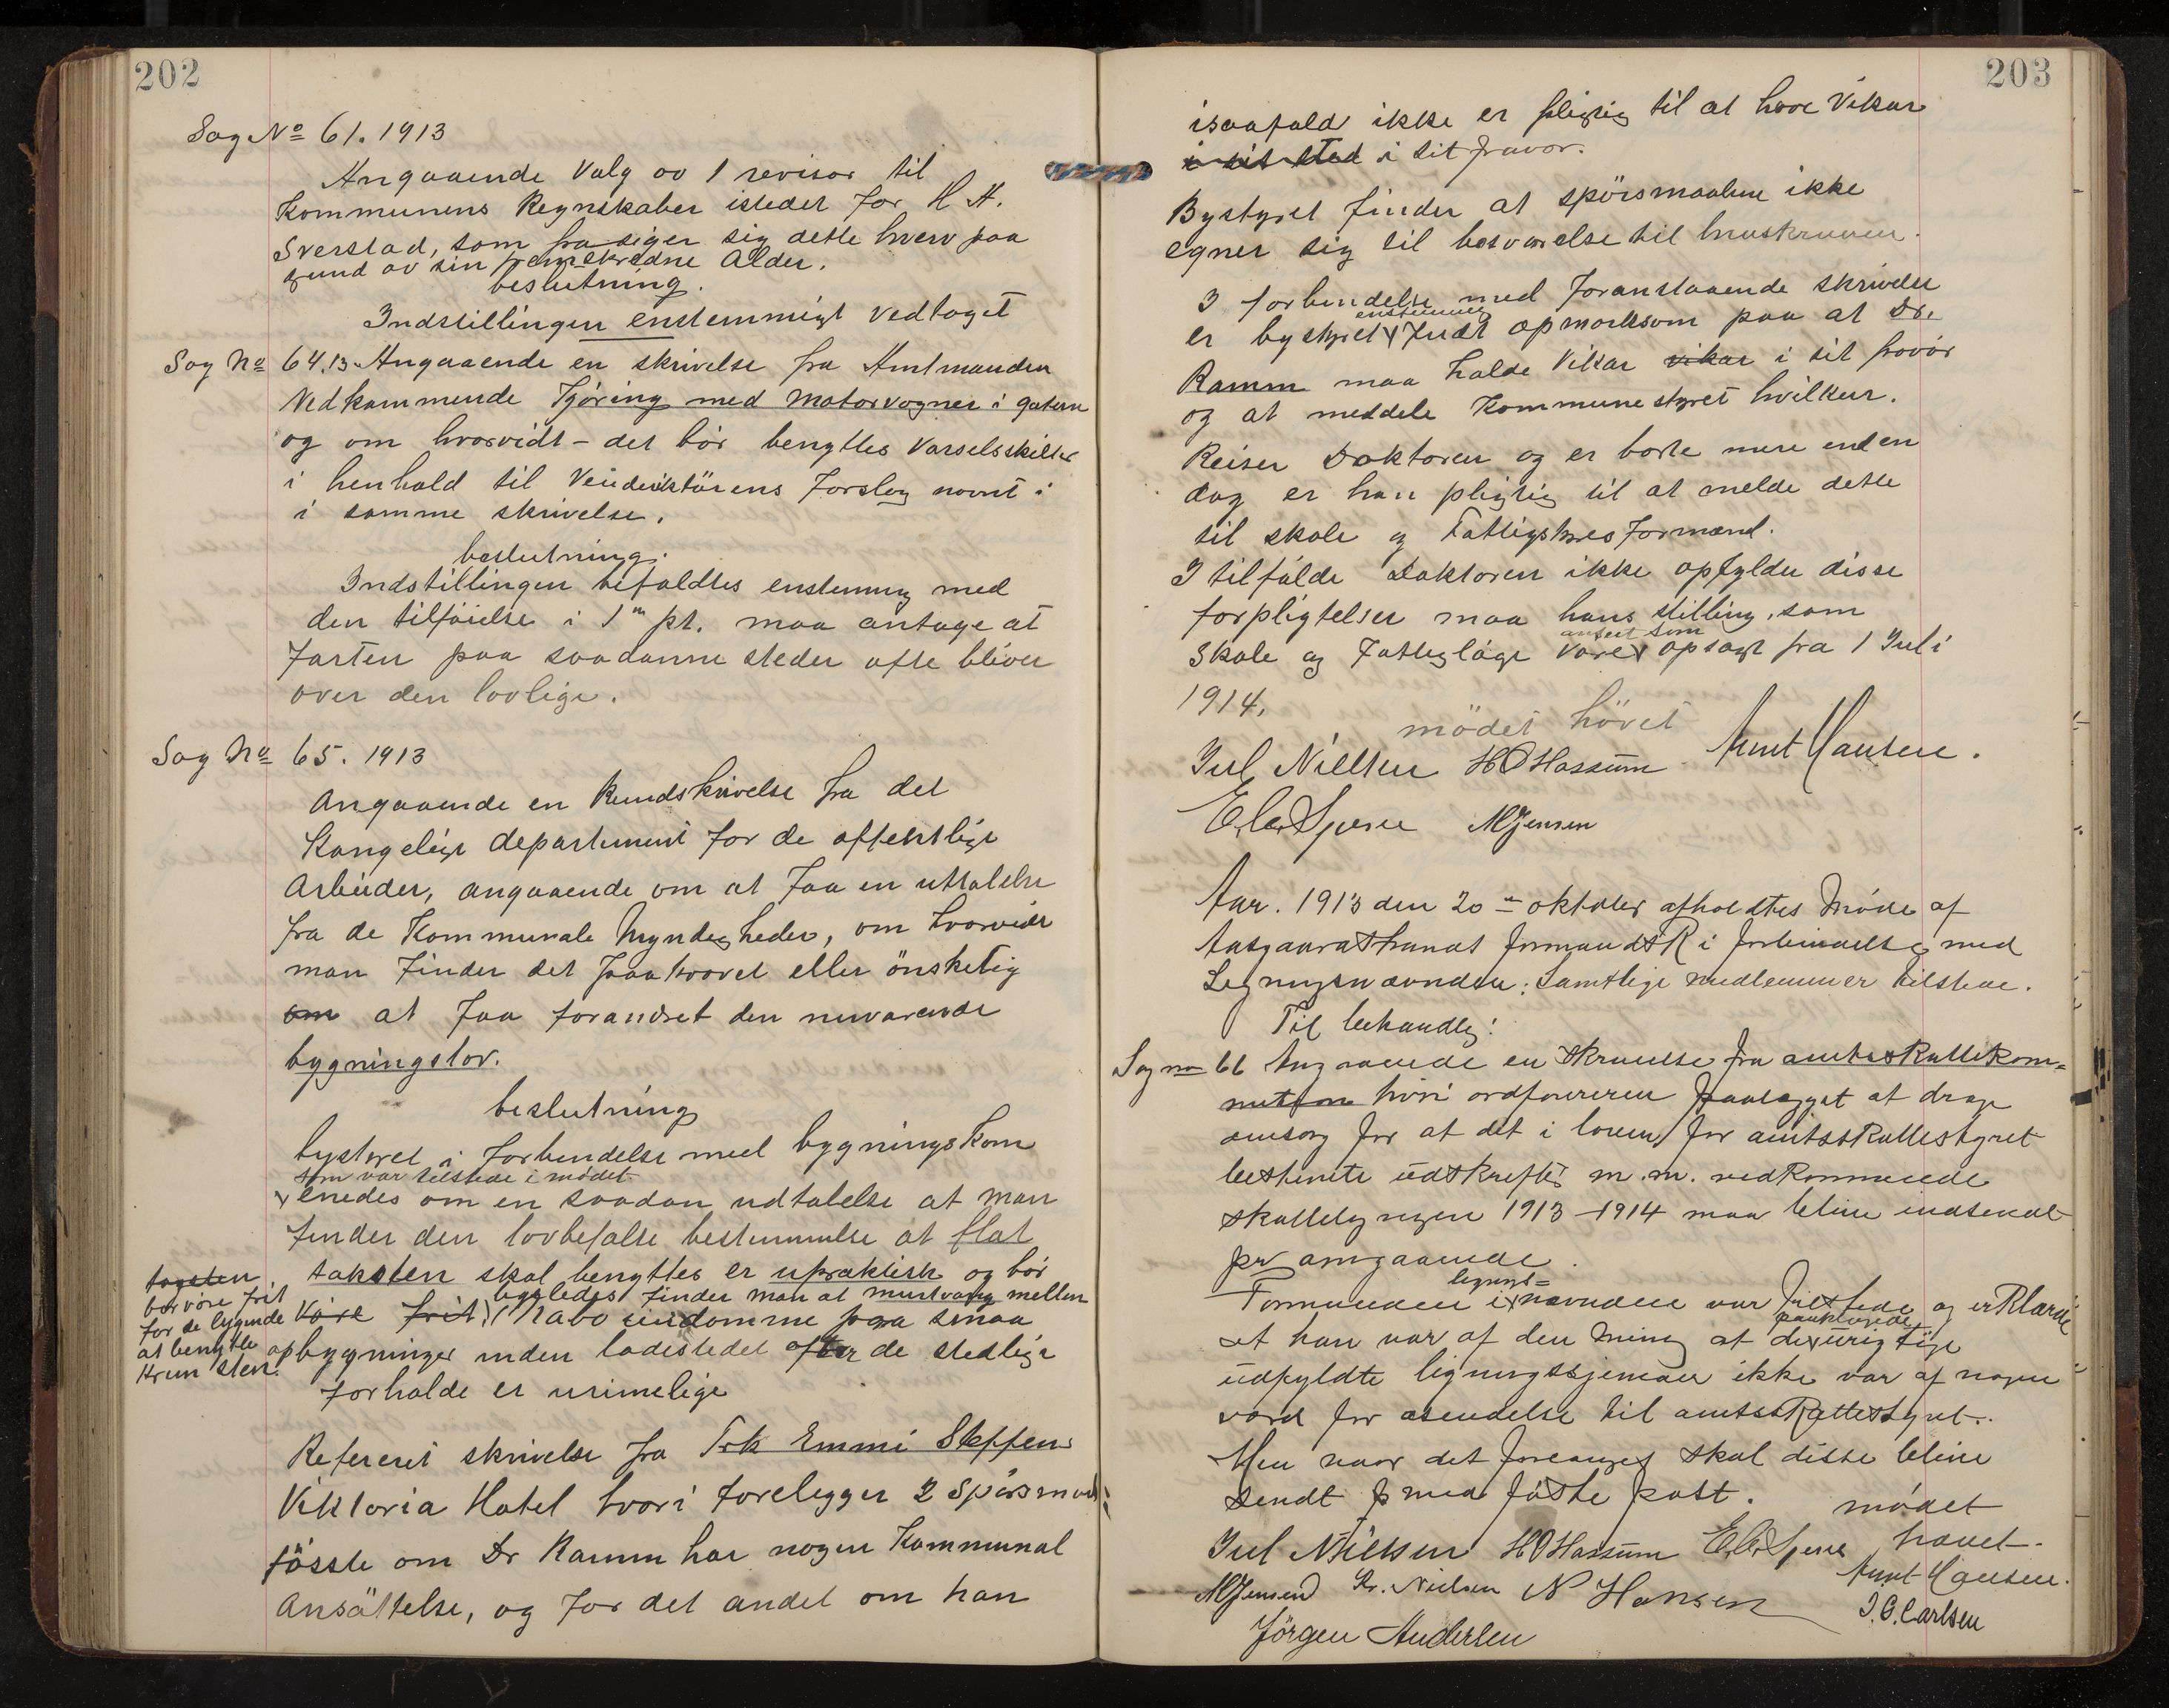 202
Sag No 61. 1913
Angaaende Valg av 1 revisor til
Kommunens Regnskaber istedet for H A.
Sverstad, som frasiger sig dette hverv paa
grund av sin fremskredne Alder.
beslutning.
Indstillingen enstemmigt vedtaget
Sag No 64.13 Angaaende en skrivelse fra Amtmanden
Vedkommende Kjöring med Motorvogner i gatern
og om hvorvidt – det bör benyttes Varselsskilter
i henhold til Veidirektörens Forslag nævnt i
i samme skrivelse.
beslutning.
Indstillingen befaldtes enstemmig med
den tilföielse i 1m pt. maa antage at
farten paa saadanne steder ofte bliver
over den lovlige.
Sag No 65. 1913
Angaaende en Rundskrivelse fra det
Kongelige departement for de offentlige
Arbeider, angaaende om at faa en uttalelse
fra de Kommunale Myndigheder, om hvorvidt
man finder det paakrævet eller önskelig
om at faa forandret den nuværende
bygningslov.
beslutning
bystyret i forbindelse med bygningskom
som var tilstede i mödet
enedes om en saadan udtalelse at man
finder den lovbefalte bestemmelse at flat
taksten skal benyttes er upraktisk og bör
tagsten
bör være frit
for de bygende
at benytte
Krum sten.
ligeledes finder man at murtvang mellem
være frit, Nabo eiendomme paa smaa
opbygninger inden ladestedet efter de stedlige
forholde er urimelige
Referert skrivelse fra Frk Emmi Steffens
Viktoria Hotel hvori forelegger 2 Spörsmaal
förste om Dr Ramm har nogen Kommunal
Ansättelse, og for det andet om han
203
isaafald ikke er pligtig til at have Vikar
i sit sted i sit fravær.
Bystyret finder at spörsmaalene ikke
egner sig til besvarelse til
I forbindelse med foranstaaende skrivelse
enstemmig
er bystyret fuldt opmerksom paa at Dr.
Ramm maa holde Vikar vikar i sit fravär
og at meddele Kommunestyret hvilken.
Reiser Doktoren og er borte mere end en
dag er han pligtig til at melde dette
til skole og Fattigstyresformænd.
I tilfälde Doktoren ikke opfylder disse
forpligtelser maa hans stilling, som
anseet som
Skole og Fattigläge være opsagt fra 1 Juli
1914.
mödet hövet
Jul Nielsen HOHassum Aunt Hansen.
MJensen
Aar. 1913 den 20 oktober afholdtes Möde af
Aasgaardstrands formandsk i forbindelse med
Ligningsnævnden; Samtlige medlemmer tilstede.
Til behandlg:
Sag no 66 Angaaende en skrivelse fra amtsskattekom=
hvori ordföreren paalægget at drage
omsorg for at det i loven for amtsskattestyret
bestemte udskrifter m.m. vedkommende
skatteligningen 1913–1914 maa blive indsendt
pr omgaaende.
lignings=
Formanden i nævnden var tilstede og erklærte
at han var af den mening at de urigtige
udfyldte ligningsskjemaer ikke var af nogen
værd for afsendelse til amtsskattestyret.
Men naar det forlanges skal disse blive
sendt med förste post. mödet
hævet.
Jul Nielsen HOHassum
Aunt Hansen.
MJensen Kr. Nielsen N Hansen
J.G. Carlsen
Jörgen Andersen